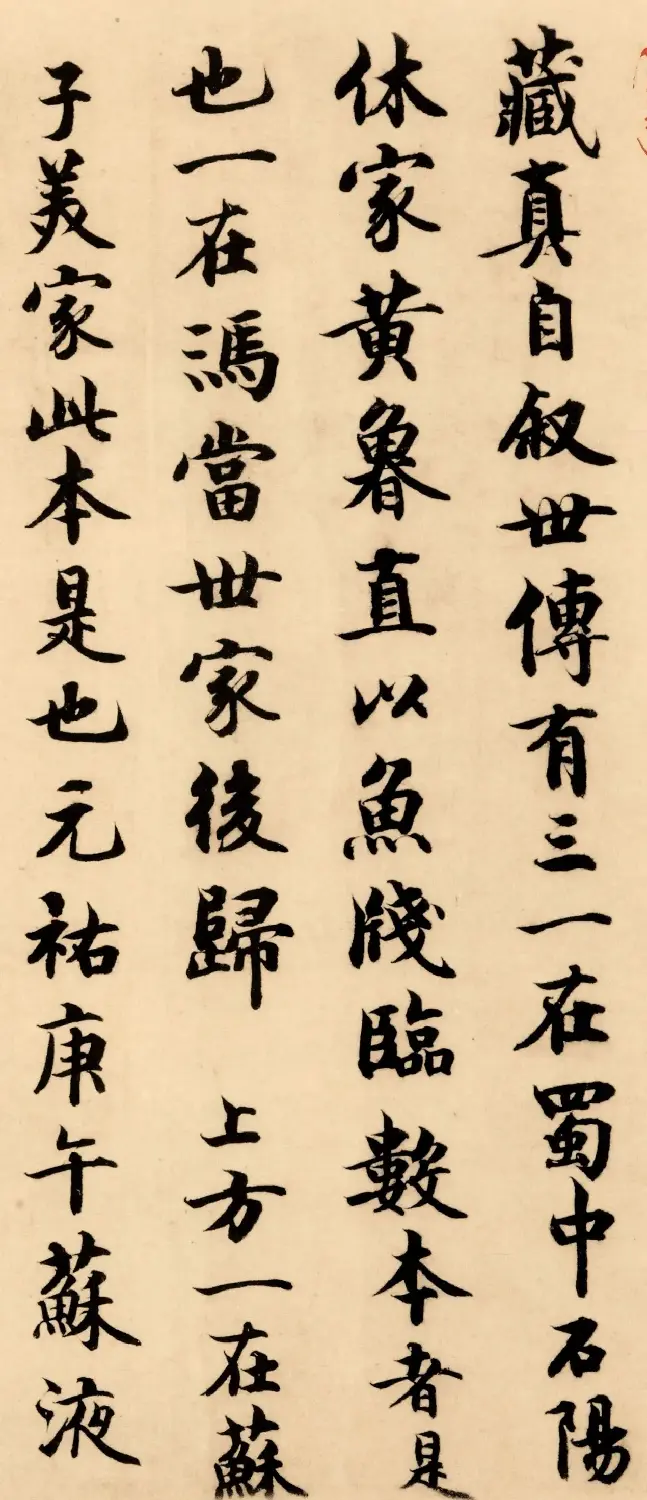 藏真自叙世傳有三一在蜀中石陽
休家黄魯直以魚牋臨數本者是
也一在馮當世家後歸 上方一在蘇
子美家此本是也元祐庚午蘇液